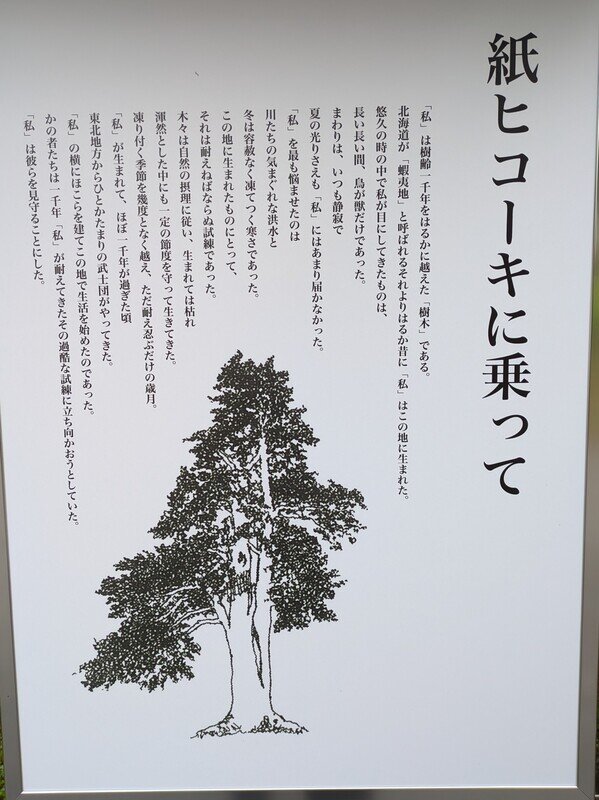 紙ヒコーキに乗って
「私」は樹齢一千年をはるかに越えた「樹木」である。
北海道が「蝦夷地」と呼ばれるそれよりはるか昔に「私」はこの地に生まれた。
悠久の時の中で私が目にしてきたものは、
長い長い間、鳥が獣だけであった。
まわりは、いつも静寂で
夏の光りさえも「私」にはあまり届かなかった。
「私」を最も悩ませたのは
川たちの気まぐれな洪水と
冬は容赦なく凍てつく寒さであった。
この地に生まれたものにとって、
それは耐えねばならぬ試練であった。
木々は自然の摂理に従い、生まれては枯れ
渾然とした中にも一定の節度を守って生きてきた。
凍り付く季節を幾度となく越え、ただ耐え忍ぶだけの歳月。
「私」が生まれて、ほぼ一千年が過ぎた頃
東北地方からひとかたまりの武士団がやってきた。
「私」の横にほこらを建てこの地で生活を始めたのであった。
かの者たちは一千年「私」が耐えてきたその過酷な試練に立ち向かおうとしていた。
「私」は彼らを見守ることにした。